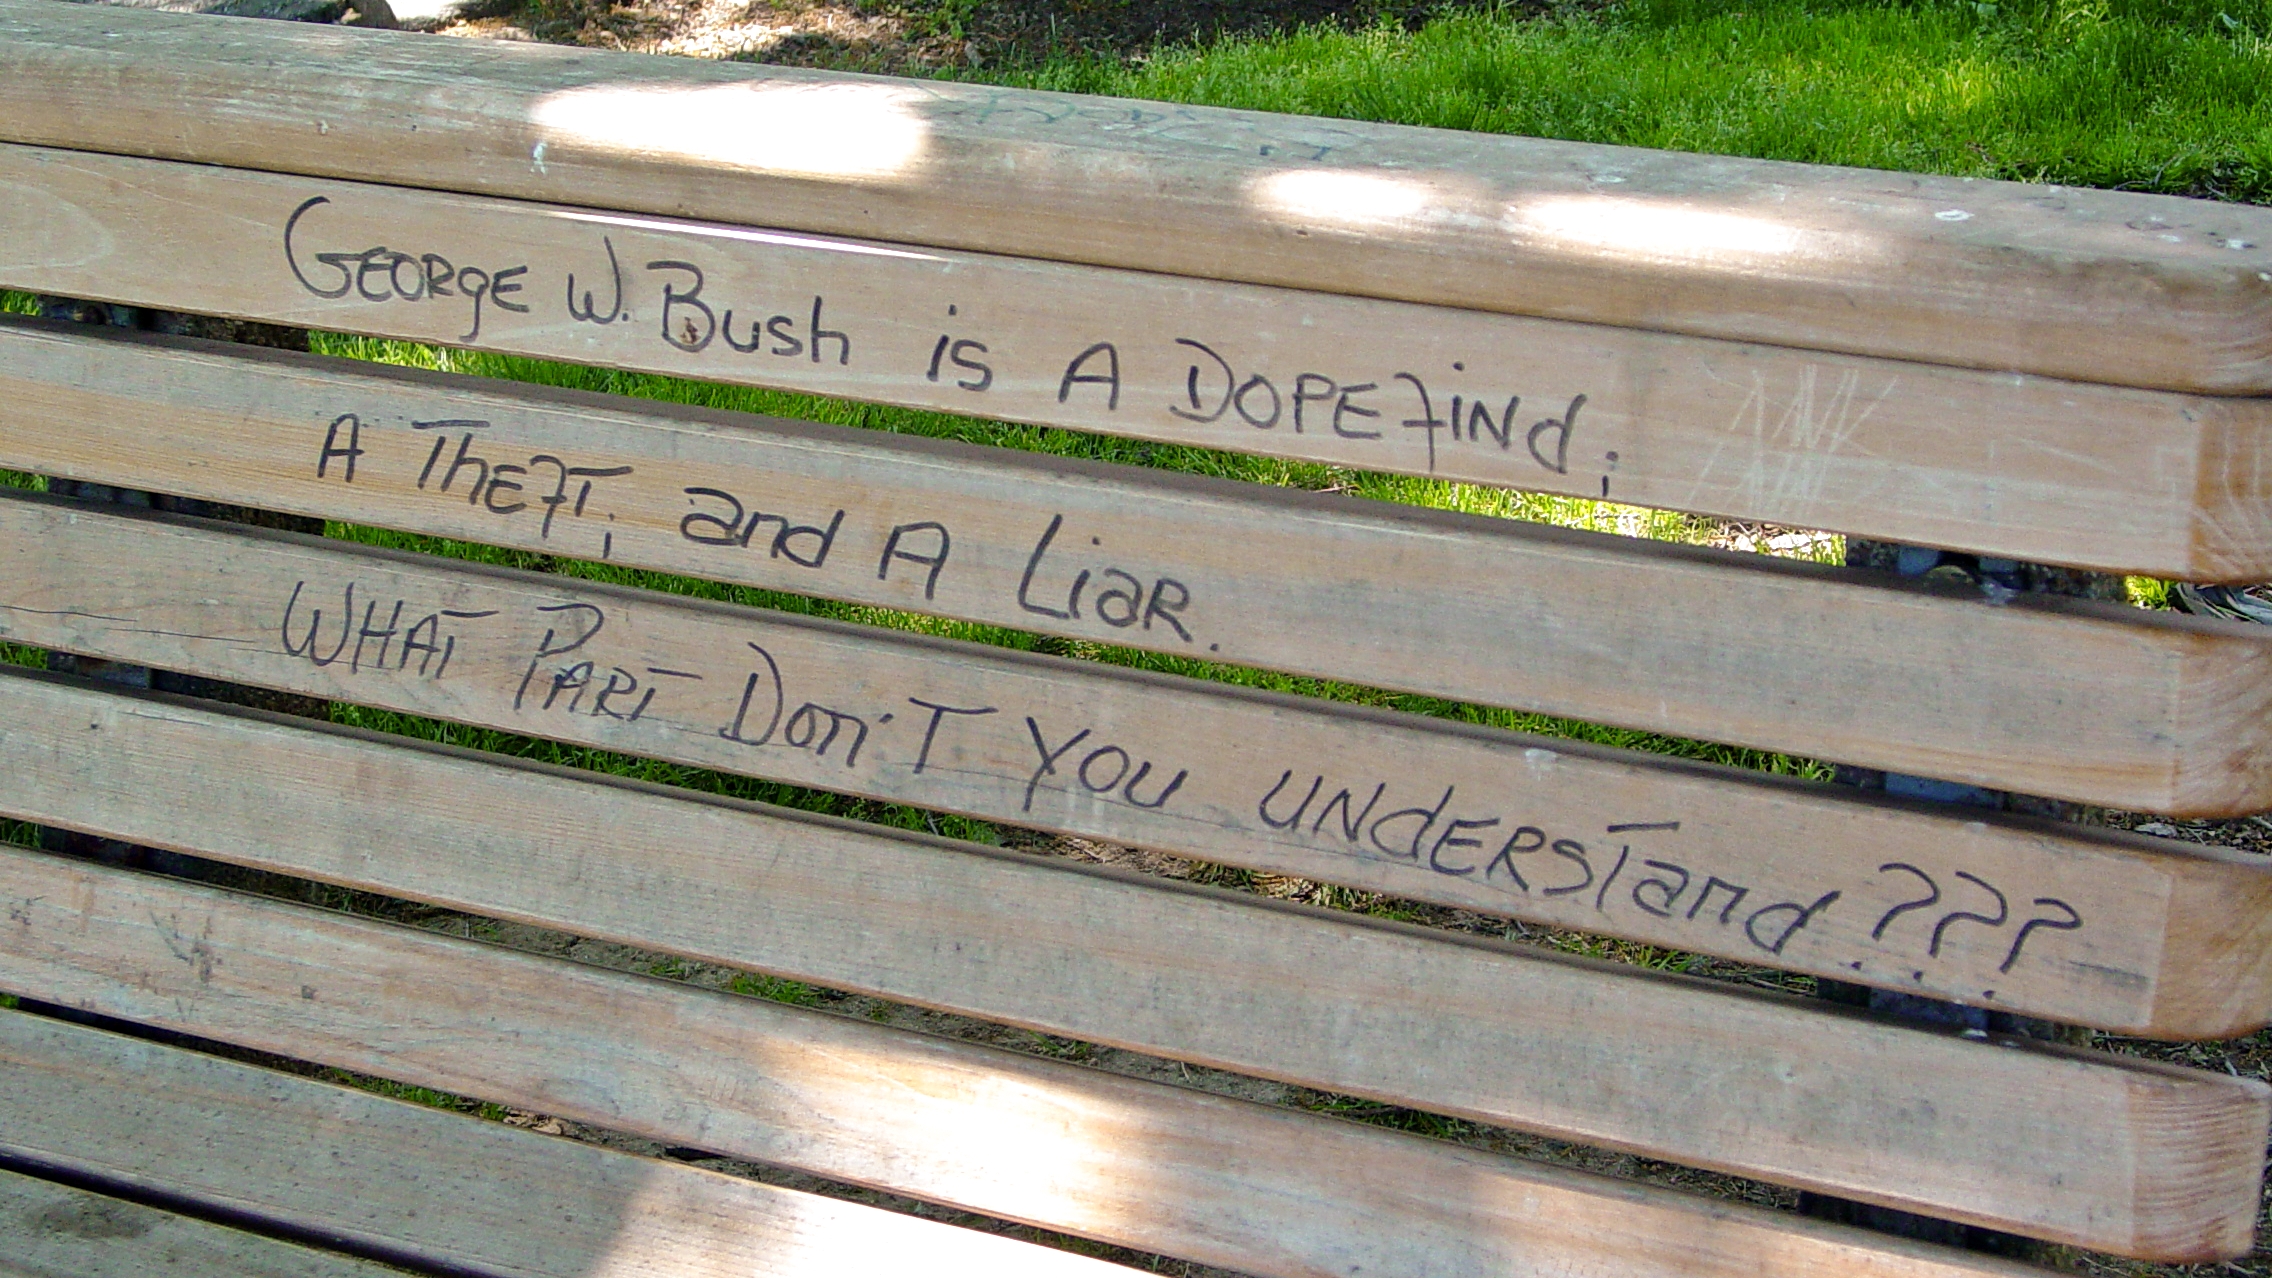 GEORgE W. Bush is A DOPEfiNd;
A ThEfT; and A LiaR.
WHAT PART Don'T YOU UNdERSTand???